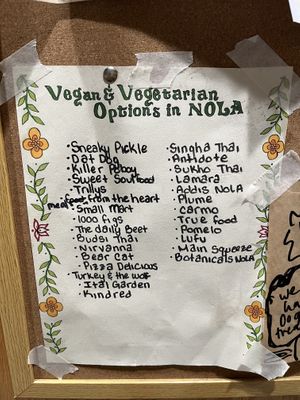 Vegan & Vegetarian
Options in NOLA
•Sneaky Pickle
•Dat Dog
•Killer Poboy
•Sweet Soulfood
•Trilly's
meatfeet from the heart
•Small Mart
•1000 figs
•The daily Beet
•Budsi Thai
•Nirvanna
•Bear Cat
•Pizza Delicious
•Turkey & the wolf
•Ital Garden
•Kindred
•Singha Thai
•Antidote
•Sukho Thai
•Lamara
•Addis NOLA
•Plume
•Carmo
•True Food
•Pomelo
•Lufu
•Main Squeeze
•Botanicals NOLA
we